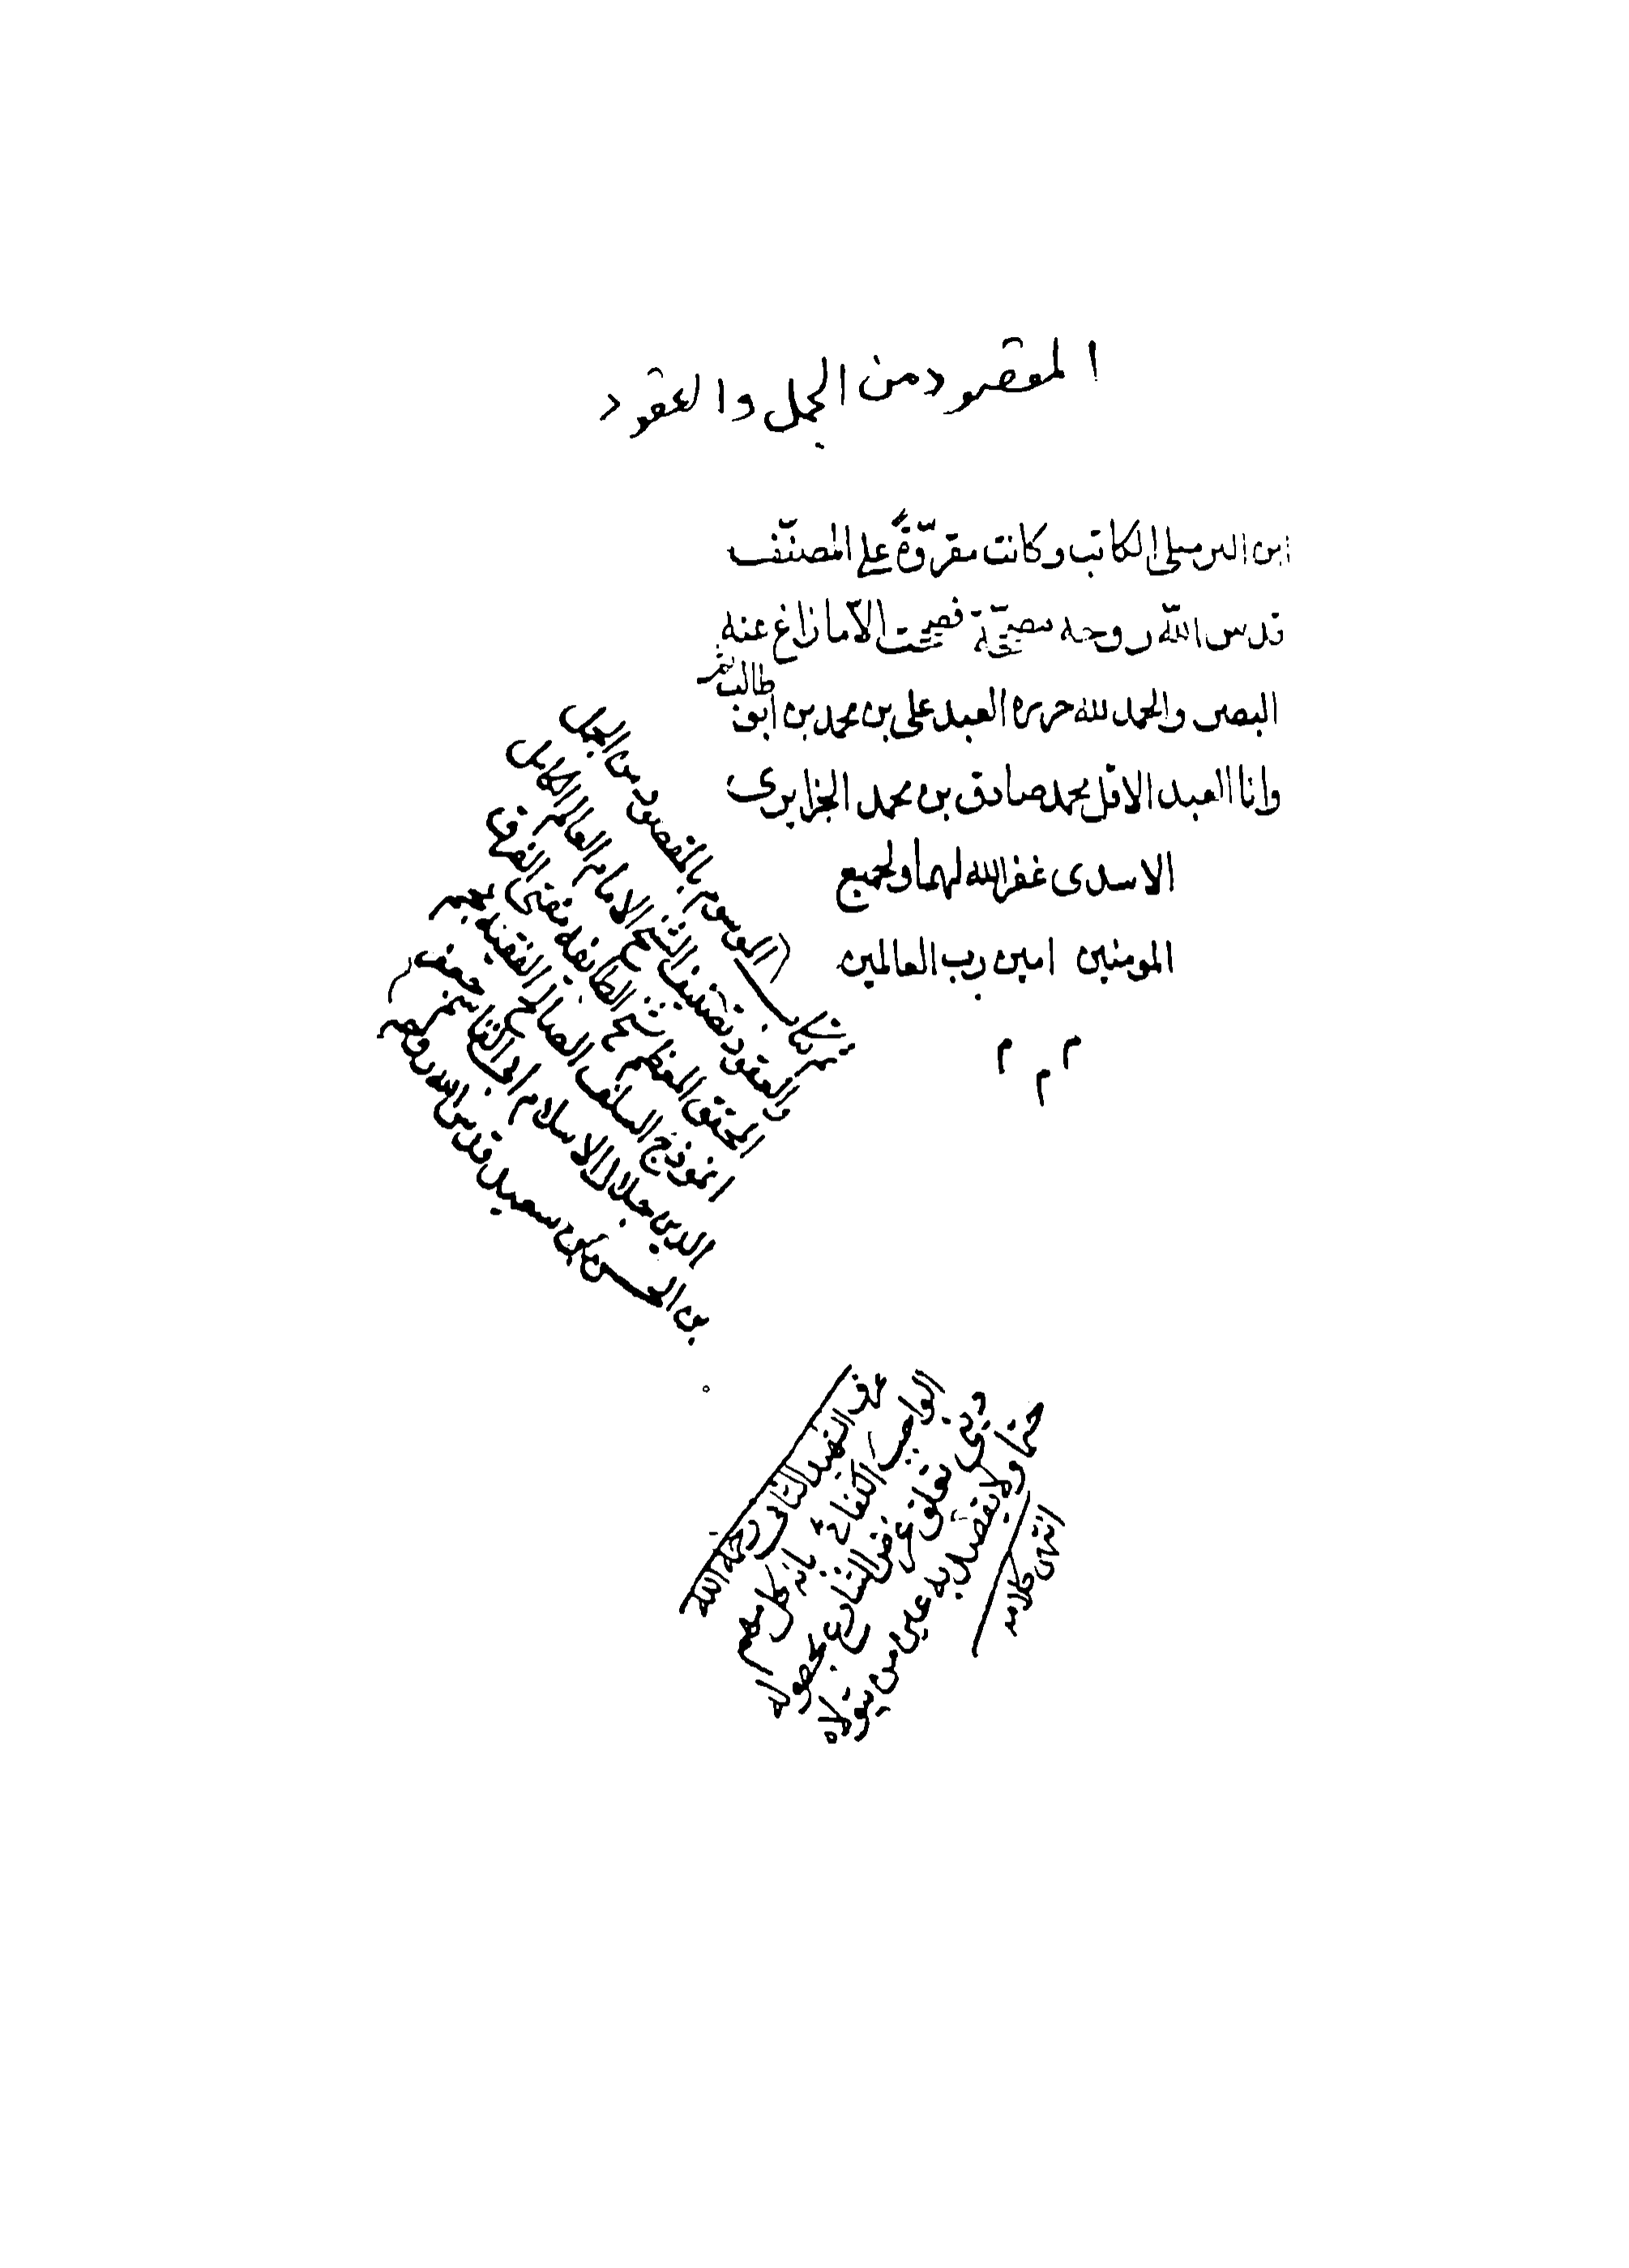 المقصود من الجمل والعقود
ابن البرميلي الكاتب وكانت مقروّة على المصنّف
قدس اللّه روحه مصحّحة فصححت الّا ما زاغ عنه
البصر والحمد لله حرره العبد على بن محمد بن ابى
طالب ثم
وانا العبد الاقل محمد صادق بن محمد الجزايرى
الاسدى غفر الله لهما ولجميع
المومنين امين رب العالمين
م م م
كتاب الموسوم بالمقصود من الجمل
والعقود تصنيف الشيخ الامام العالم الكامل
المحقق المعظم شيخ الطايفة مفتى الفرق
انموذج السلف الصالح الفقيه نجم
الدين جلال الاسلام ابى القاسم جعفر
بن الحسن بن سعيد قدس الله روحه
عرف الشهيد الثانى رحمه الله
الواجب الكفائي بانه كل مهم
دينى تعلق غرض الشارع بحصوله
حتما ولا يقصد به عين من يتولاه
انتهى كلامه